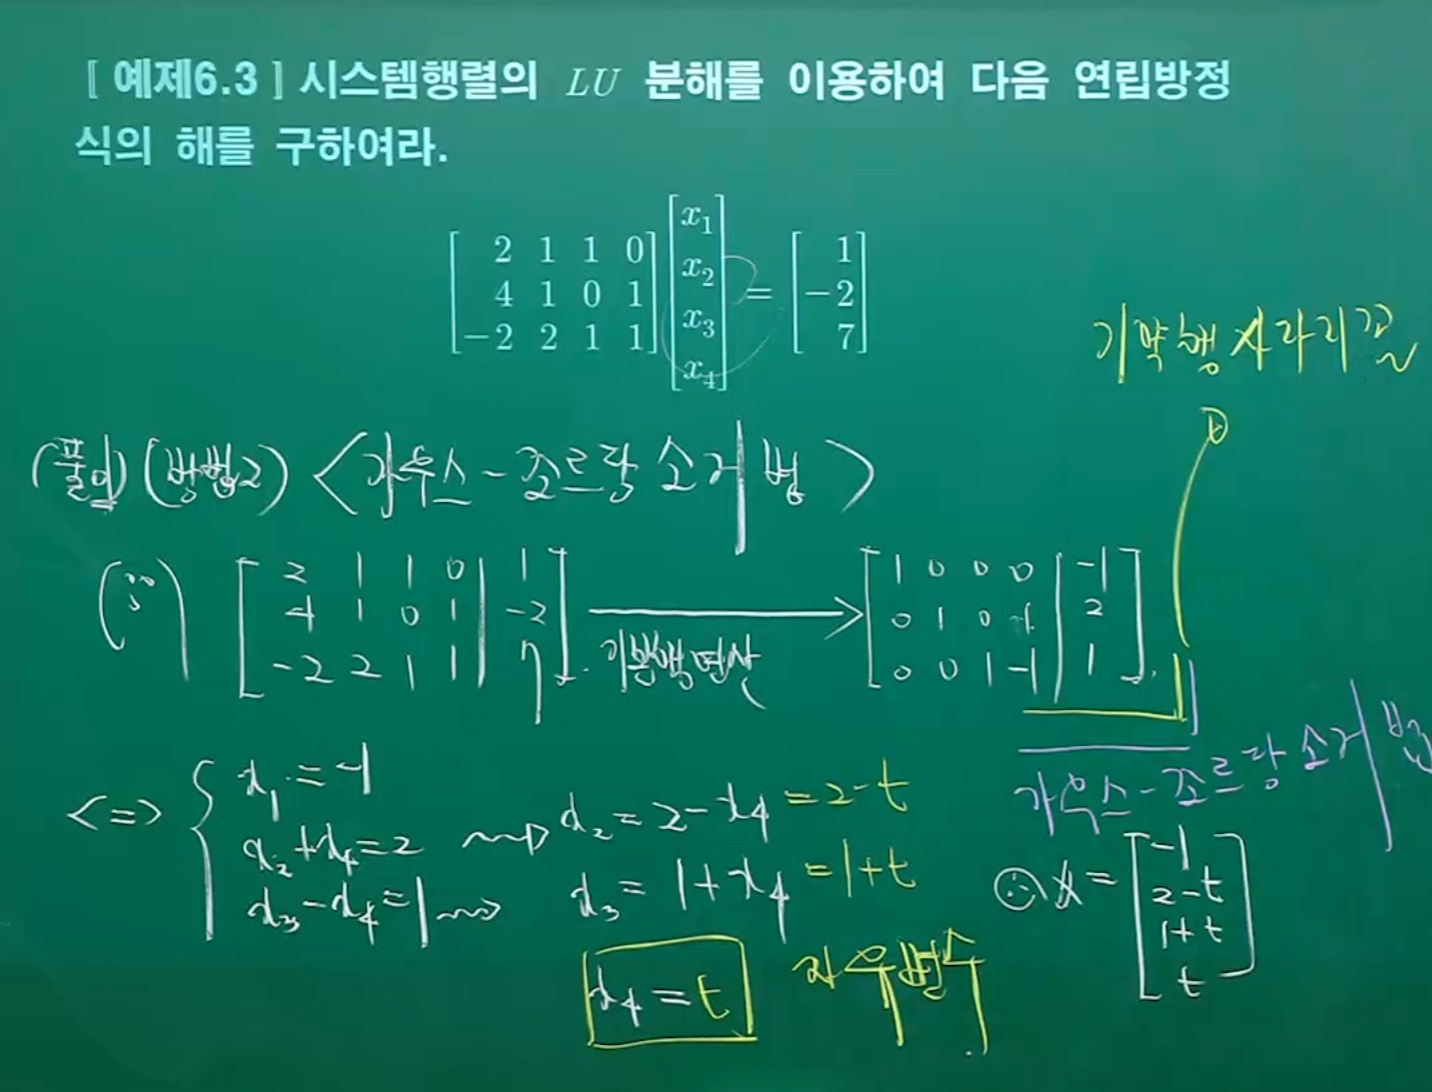 [ 예제6.3 ] 시스템행렬의 LU 분해를 이용하여 다음 연립방정
식의 해를 구하여라.
[ 2 1 1 0 ; 4 1 0 1 ; -2 2 1 1 ] [ x₁ ; x₂ ; x₃ ; x₄ ] = [ 1 ; -2 ; 7 ]
기약행사다리꼴
(풀이) (방법2) <가우스-조르당 소거법>
[ 2 1 1 0 | 1 ; 4 1 0 1 | -2 ; -2 2 1 1 | 7 ]. 기본행연산 → [ 1 0 0 0 | -1 ; 0 1 0 1 | 2 ; 0 0 1 -1 | 1 ].
가우스-조르당 소거법
<=> { x₁ = -1
x₂ + x₄ = 2 ⇝ x₂ = 2 - x₄ = 2 - t
x₃ - x₄ = 1 ⇝ x₃ = 1 + x₄ = 1 + t
x₄ = t 자유변수
∴ x = [ -1 ; 2-t ; 1+t ; t ]